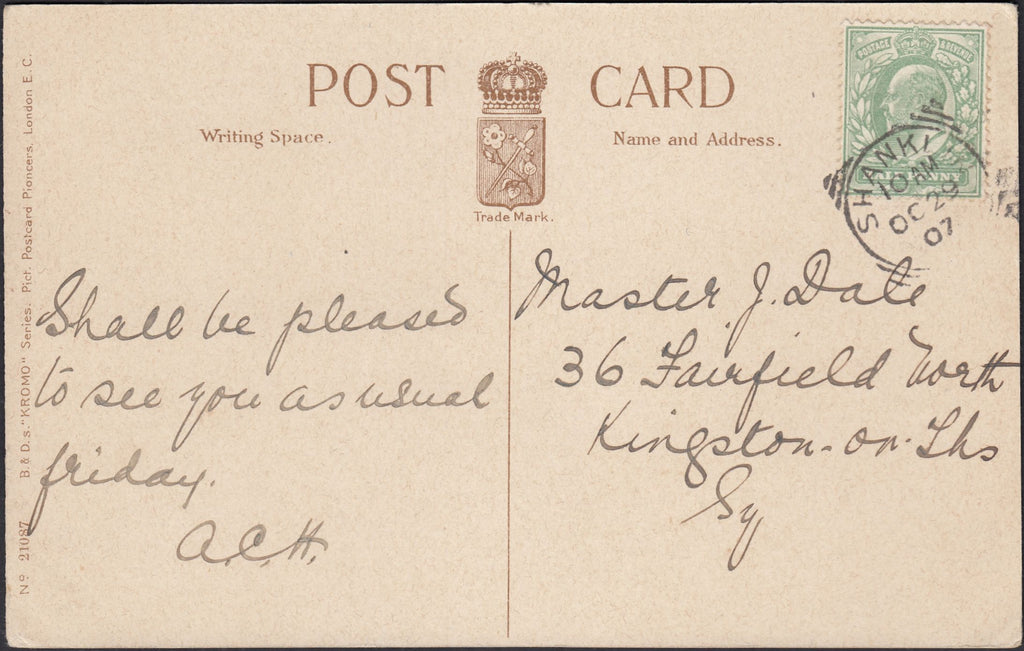 POST CARD
Writing Space.
Name and Address.
Trade Mark.
POSTAGE & REVENUE
SHANKL
10 AM
OC 29
07
Shall be pleased
to see you as usual
friday.
A.C.H.
Master J. Dale
36 Fairfield North
Kingston-on-Ths
Sy
No 21087 B & D.s. "KROMO" Series. Pict. Postcard Pioneers, London E.C.